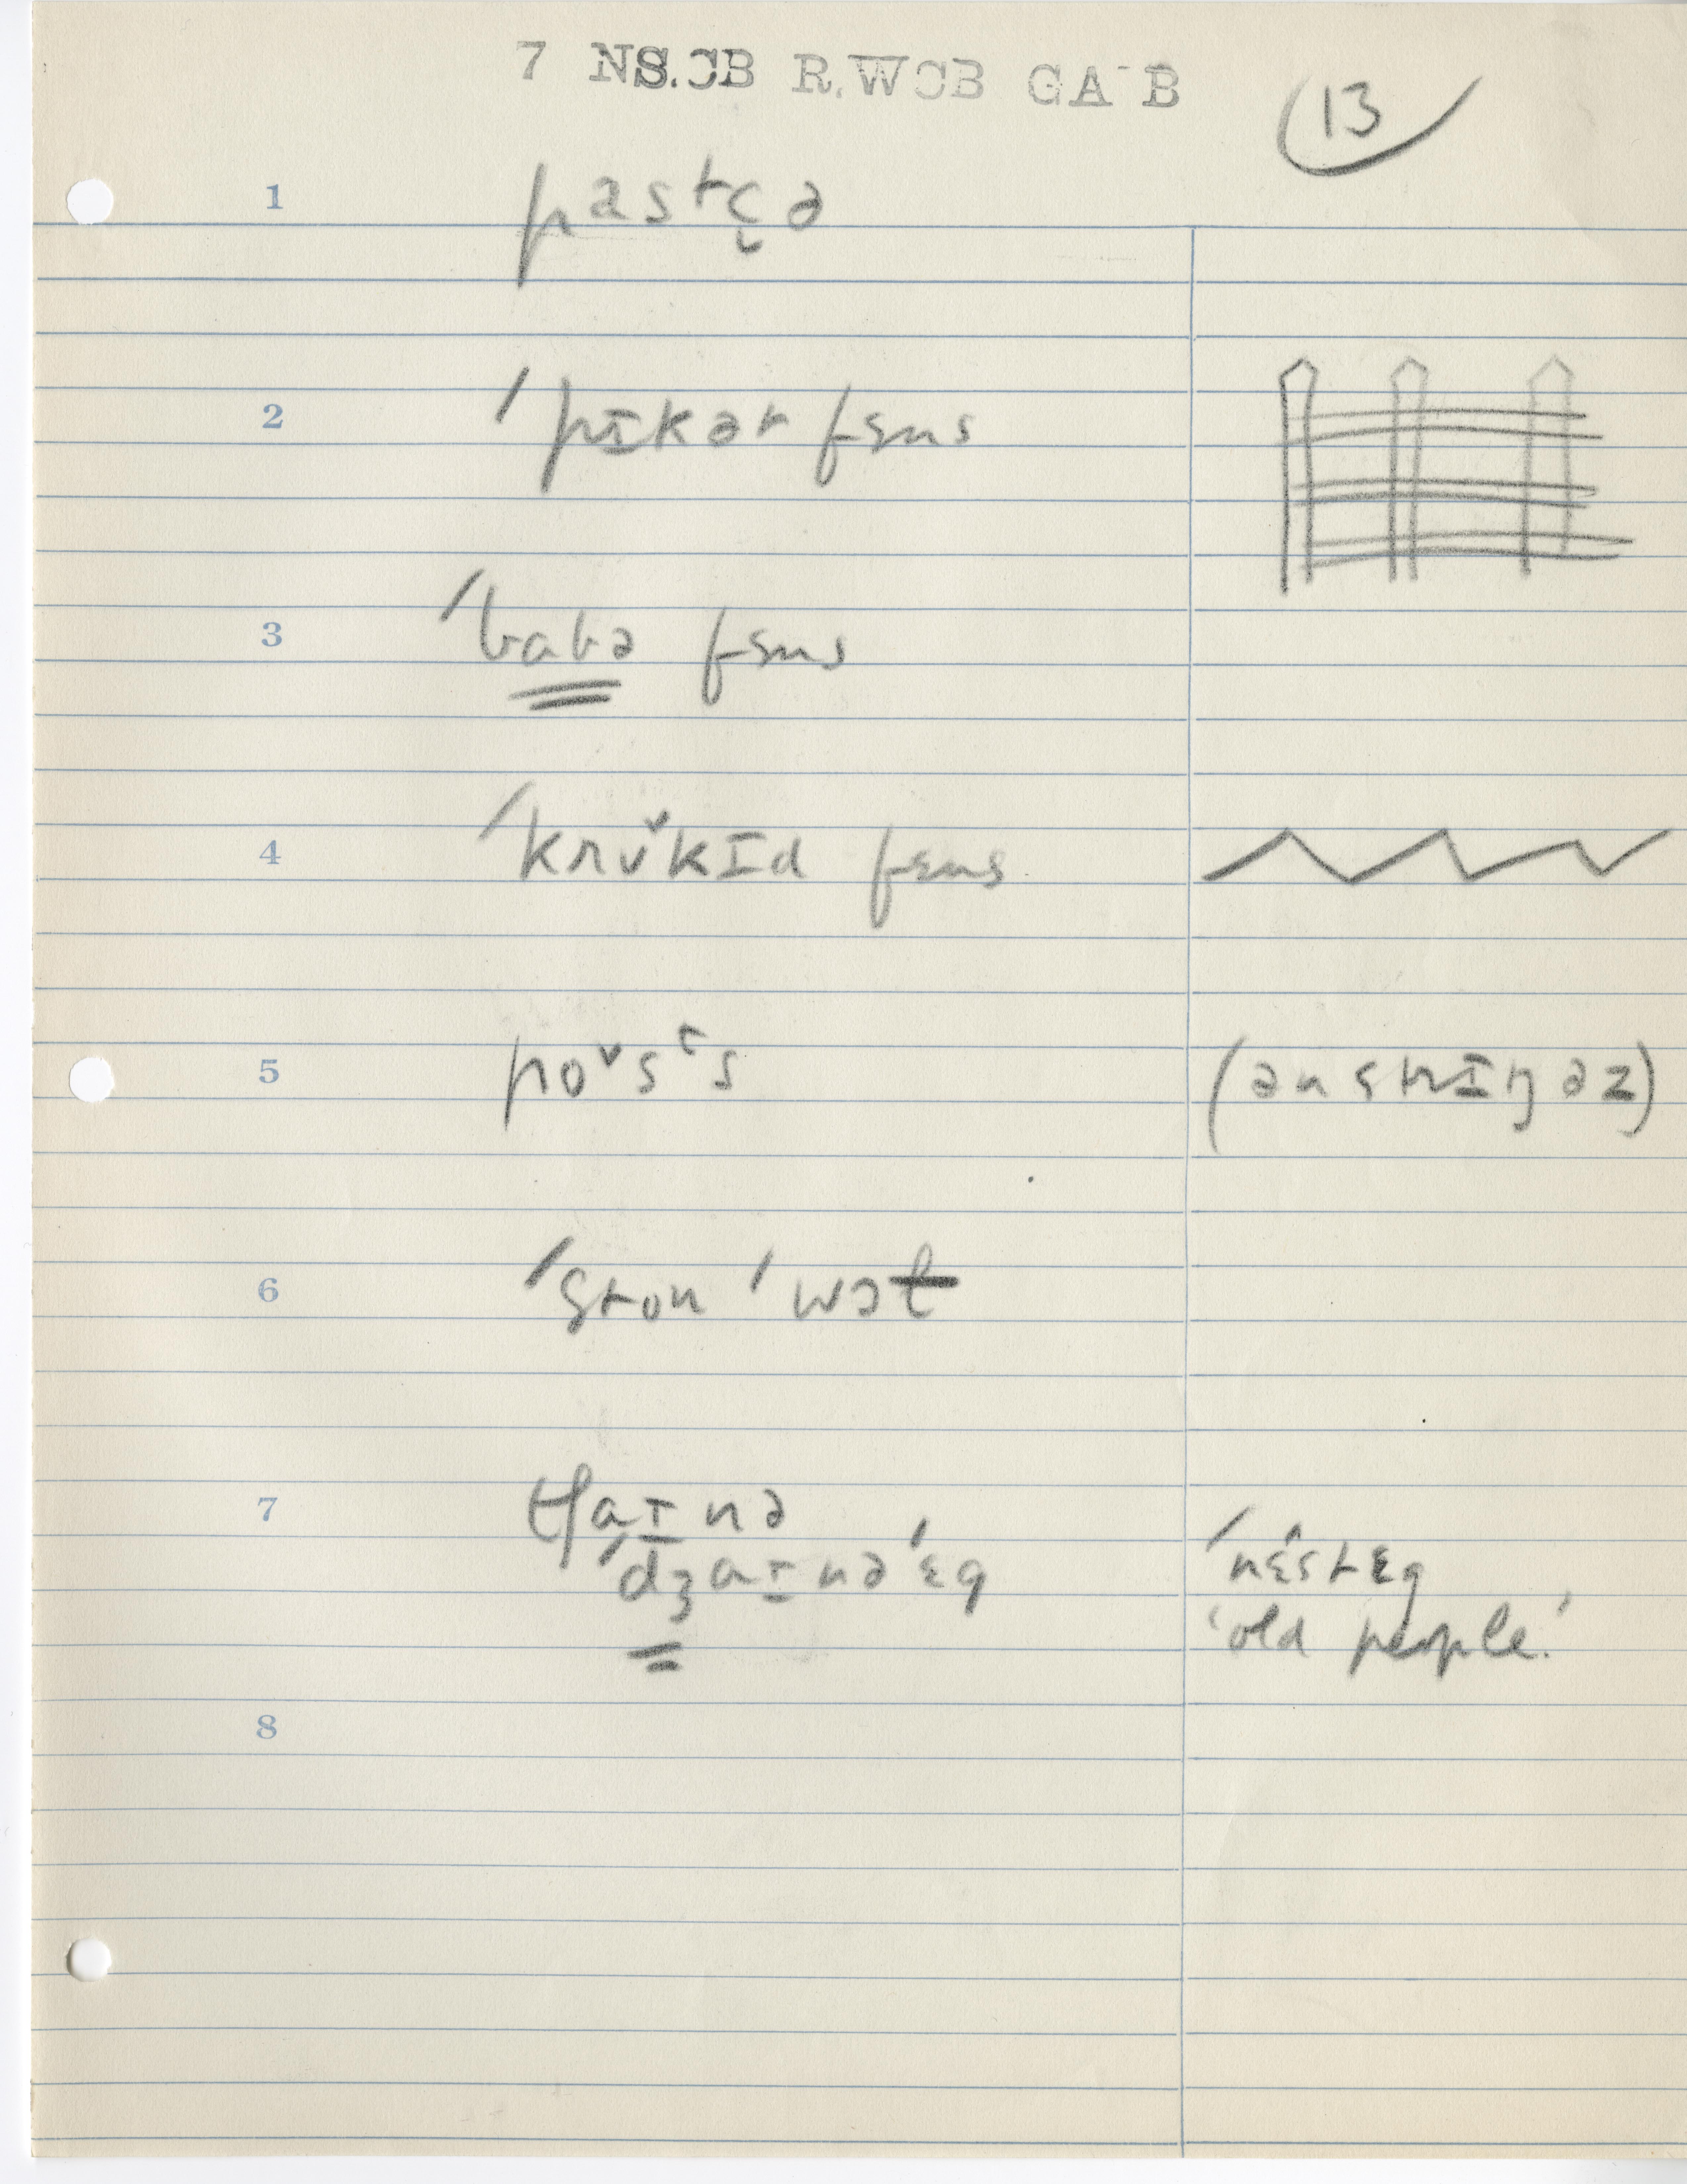 7 NS.CB R.WCB GA B
13
1 pastçə
2 ˈpɪkət fɛns
3 ˈbabə fɛns
4 ˈkrʊ˅kɪd fɛns
5 po˅sᵗs (ən strɪŋəz)
6 ˈston ˈwɔɫ
7 tʃaɪnə
ˈdʒaɪnəˈɛg ˈnɛ^stɛg
'old people.'
8